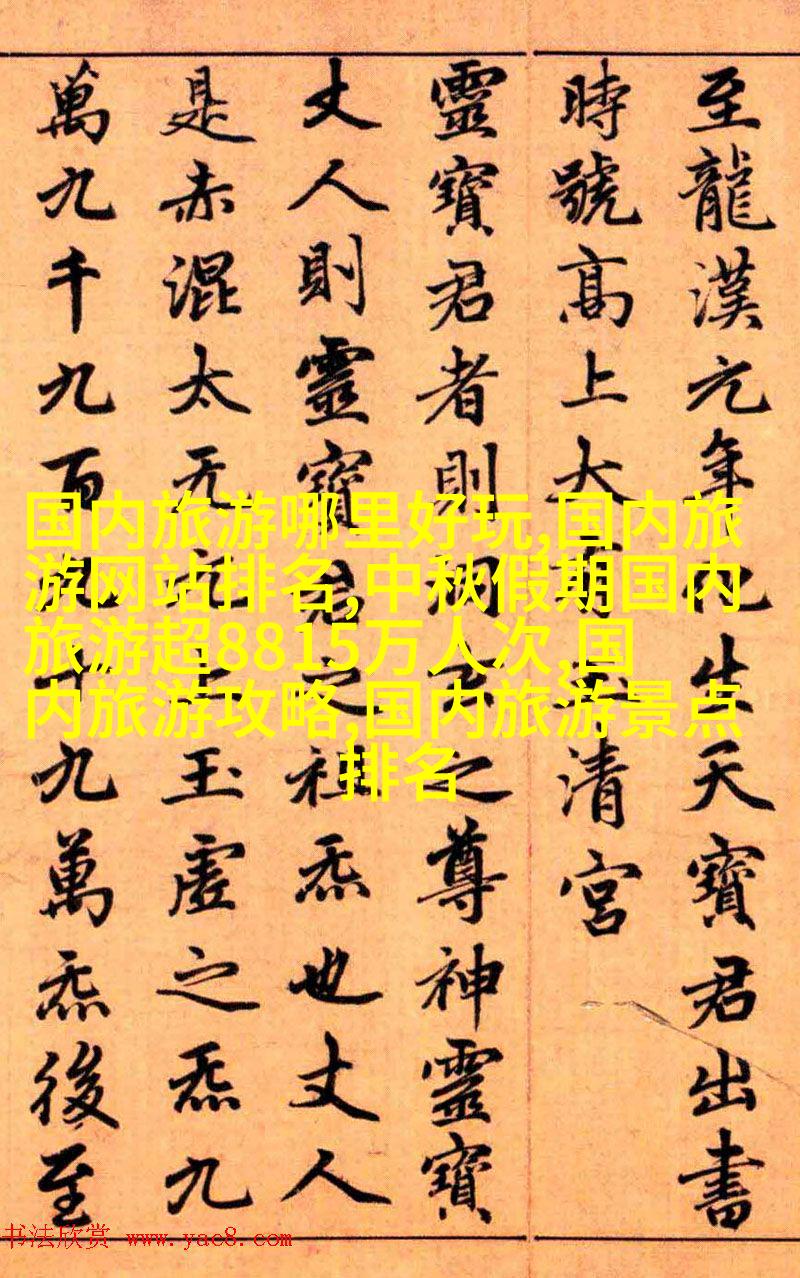 至龍漢元年化生天寶君出書
時號高上大有玉清宮
靈寶君者則洞玄之尊神靈寶
丈人則靈寶君之祖炁也丈人
是赤混太无上玉虛之炁九
萬九千九百九十九萬炁後至
国内旅游哪里好玩,国内旅
游网站排名,中秋假期国内
旅游超8815万人次,国
内旅游攻略,国内旅游景点
排名
书法欣赏 www.yac8.com